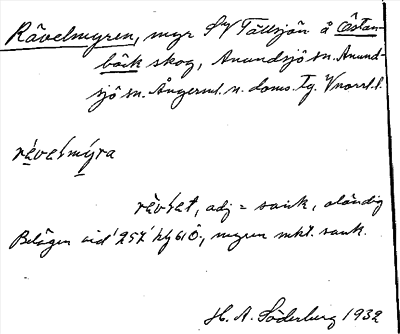 Rävelmyren, myr SV Tällsjön å Östan-
bäck skog, Anundsjö sn. Anund-
sjö sn. Ångerml. n. doms. Tg. Vnorrl. l.
rävelmýra
rävlet, adj = sank, oländig
Belägen vid 257 hf 610, myren mkt. sank.
H. A. Söderberg 1932